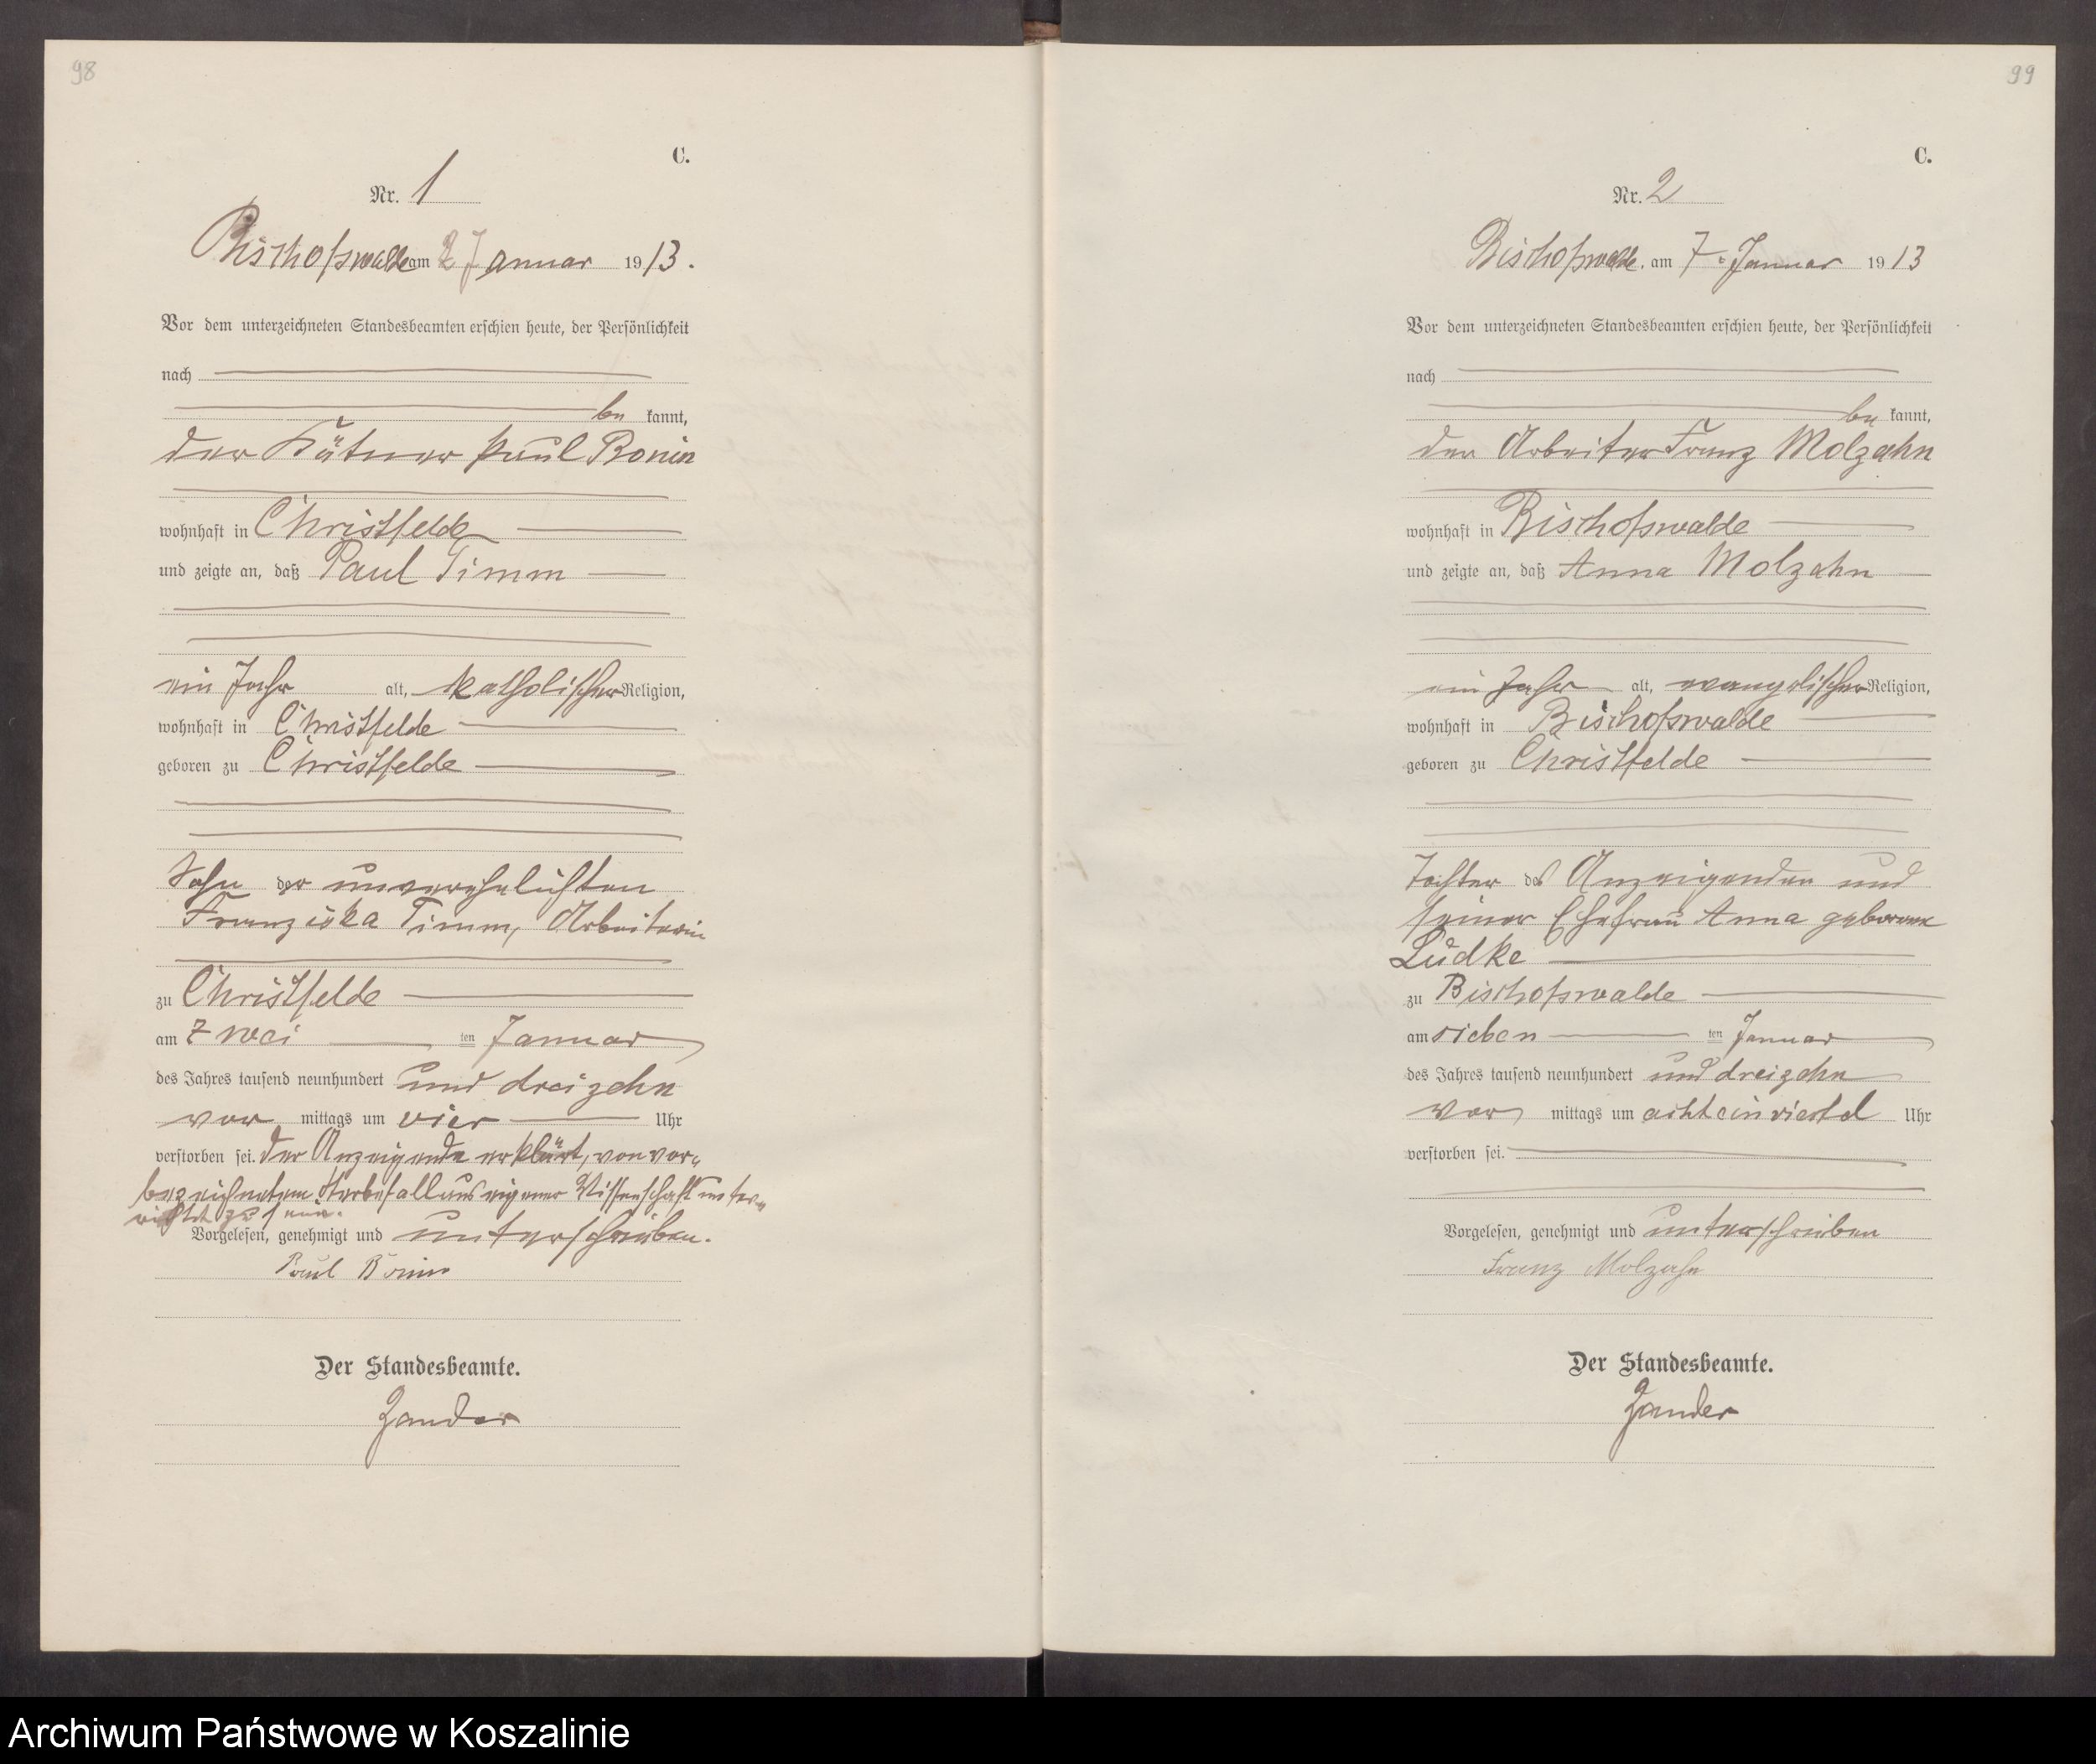 98
C.
Nr. 1
Bischofswalde am 2 Januar 1913.
Vor dem unterzeichneten Standesbeamten erschien heute, der Persönlichkeit
nach
be kannt,
der Kätner Paul Bonin
wohnhaft in Christfelde
und zeigte an, daß Paul Timm
ein Jahr alt, katholischer Religion,
wohnhaft in Christfelde
geboren zu Christfelde
Sohn der unverehelichten
Franziska Timm, Arbeiterin
zu Christfelde
am zwei ten Januar
des Jahres tausend neunhundert und dreizehn
vor mittags um vier Uhr
verstorben sei. Der Anzeigende erklärt, von vor-
bezeichnetem Sterbefall aus eigener Wissenschaft unter-
richtet zu sein.
Vorgelesen, genehmigt und unterschrieben.
Paul Bonin
Der Standesbeamte.
Zander
99
C.
Nr. 2
Bischofswalde, am 7. Januar 1913
Vor dem unterzeichneten Standesbeamten erschien heute, der Persönlichkeit
nach
be kannt,
der Arbeiter Franz Molzahn
wohnhaft in Bischofswalde
und zeigte an, daß Anna Molzahn
ein Jahr alt, evangelischer Religion,
wohnhaft in Bischofswalde
geboren zu Christfelde
Tochter des Anzeigenden und
seiner Ehefrau Anna geborene
Lüdke
zu Bischofswalde
am sieben ten Januar
des Jahres tausend neunhundert und dreizehn
vor mittags um achteinviertel Uhr
verstorben sei.
Vorgelesen, genehmigt und unterschrieben
Franz Molzahn
Der Standesbeamte.
Zander
Archiwum Państwowe w Koszalinie